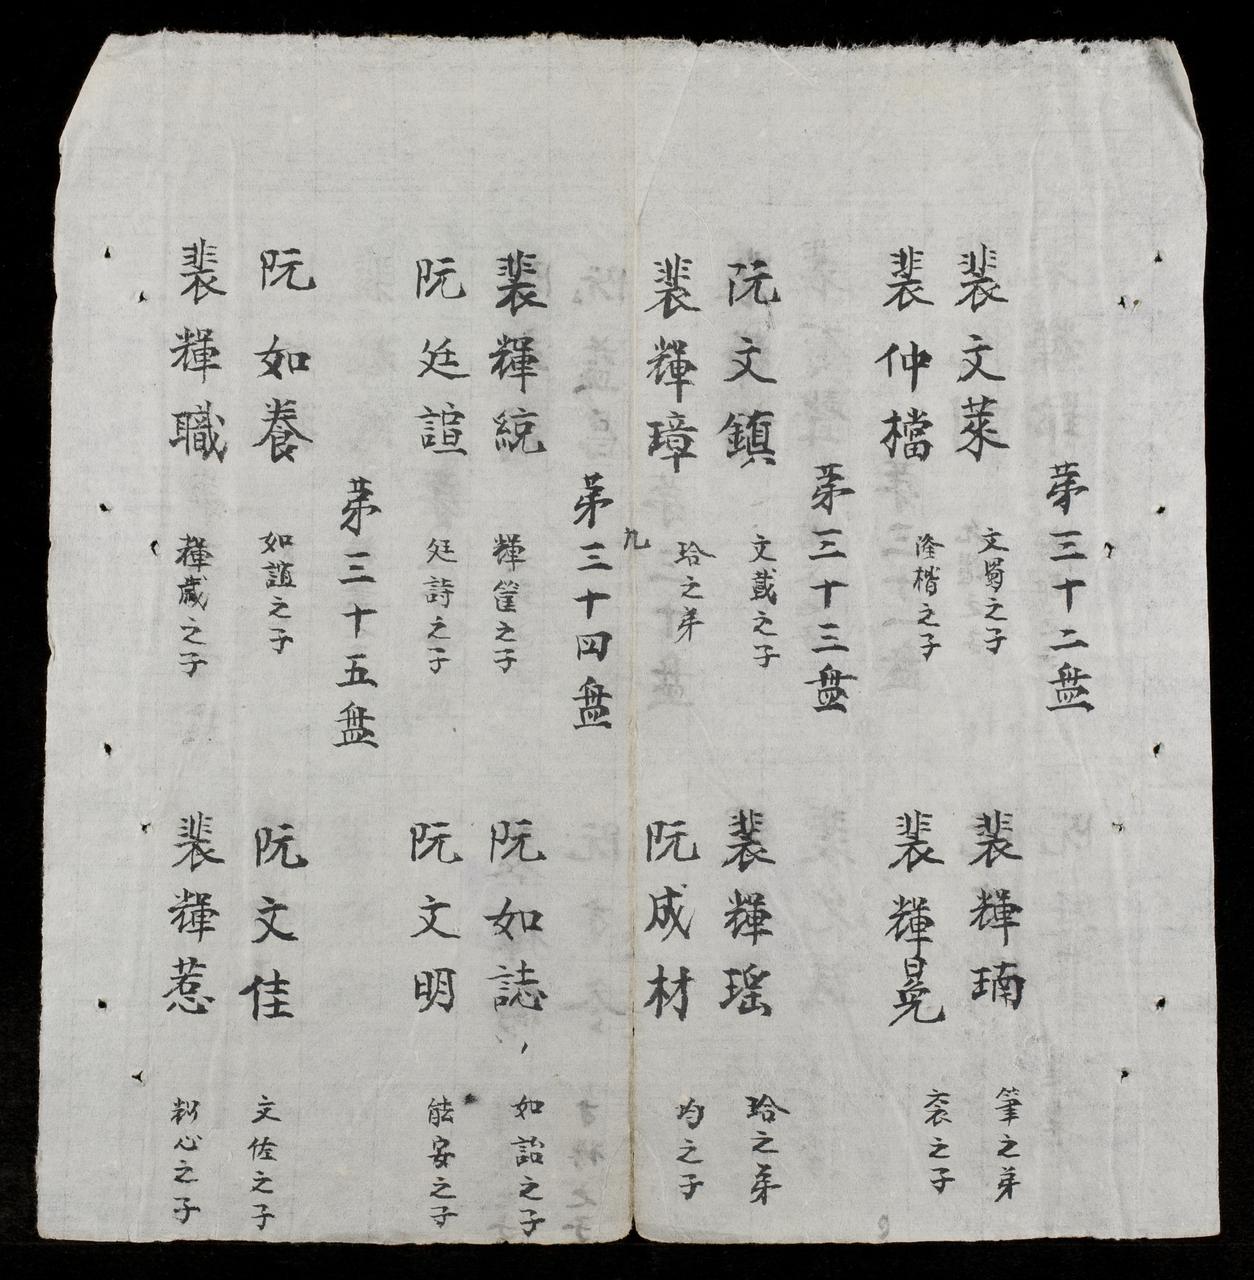 第三十二盘
裴文萊
文蜀之子
裴輝瑀
筆之弟
裴仲檔
隆楷之子
裴輝晃
衮之子
第三十三盘
阮文鎮
文蔵之子
裴輝瑶
珨之弟
裴輝璋
珨之弟
阮成材
均之子
九
第三十四盘
裴輝統
輝筐之子
阮如誌
如詒之子
阮廷諠
廷詩之子
阮文明
能安之子
第三十五盘
阮如養
如誼之子
阮文佳
文佐之子
裴輝職
輝葴之子
裴輝惹
之子